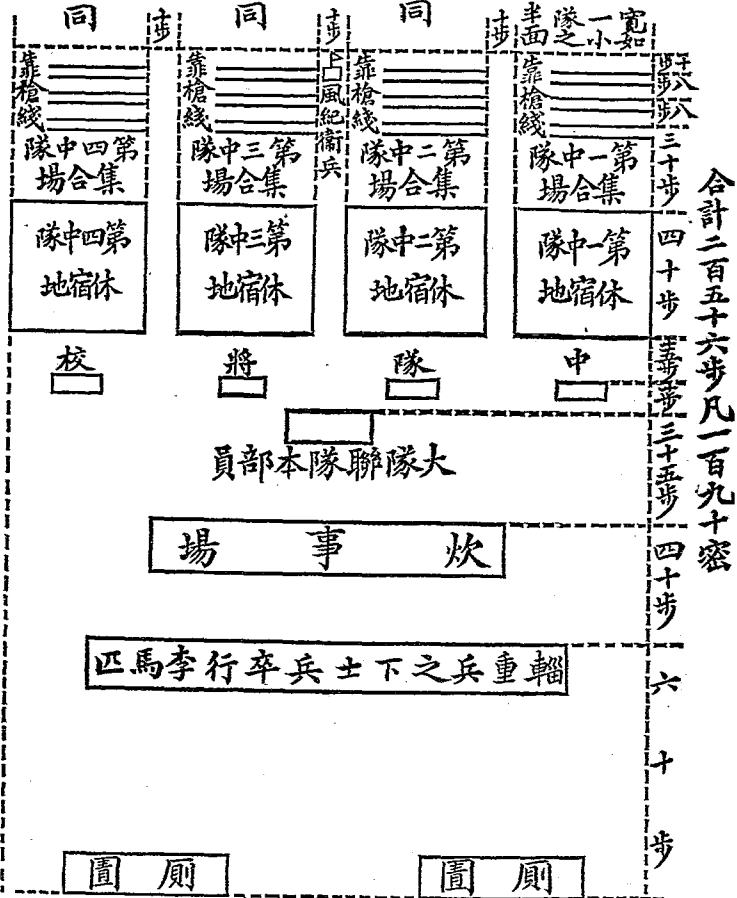 寬如一小隊之半面
十步
同
十步
同
十步
同
靠槍綫
靠槍綫
風紀衛兵
靠槍綫
靠槍綫
第一中隊集合場
第二中隊集合場
第三中隊集合場
第四中隊集合場
第一中隊休宿地
第二中隊休宿地
第三中隊休宿地
第四中隊休宿地
中隊將校
大隊聯隊本部員
炊事場
輜重兵之下士兵卒行李馬匹
厠圊
厠圊
十步
八步
八步
三十步
四十步
十五步
十步
三十五步
四十步
六十步
合計二百五十六步凡一百九十密